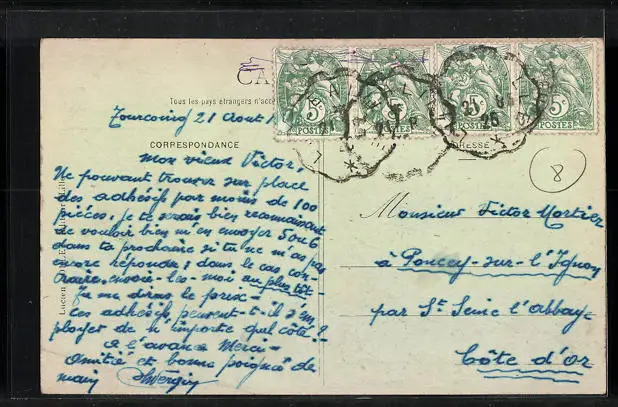 CA
Tous les pays étrangers n'acce
Tourcoing 21 Aout 1
CORRESPONDANCE
ADRESSE
8
5c
POSTES
5c
POSTES
5c
POSTES
5c
POSTES
21
25
Mon vieux Victor,
Ne pouvant trouver sur place
des adhésifs par moins de 100
pièces, je te serais bien reconnaissant
de vouloir bien m'en envoyer 5 ou 6
dans ta prochaine si tu ne m'as pas
encore répondu ; dans le cas con-
traire, envoie-les-moi au plus tôt.
Tu me diras le prix -
Ces adhésifs peuvent-t-il s'em
ployer de n'importe quel côté ?
A l'avance Merci -
Amitié et bonne poignée de
main
Monsieur Victor Mortier
à Poncey-sur-l'Ignon
par St Seine l'abbaye
Côte d'or
Lucien